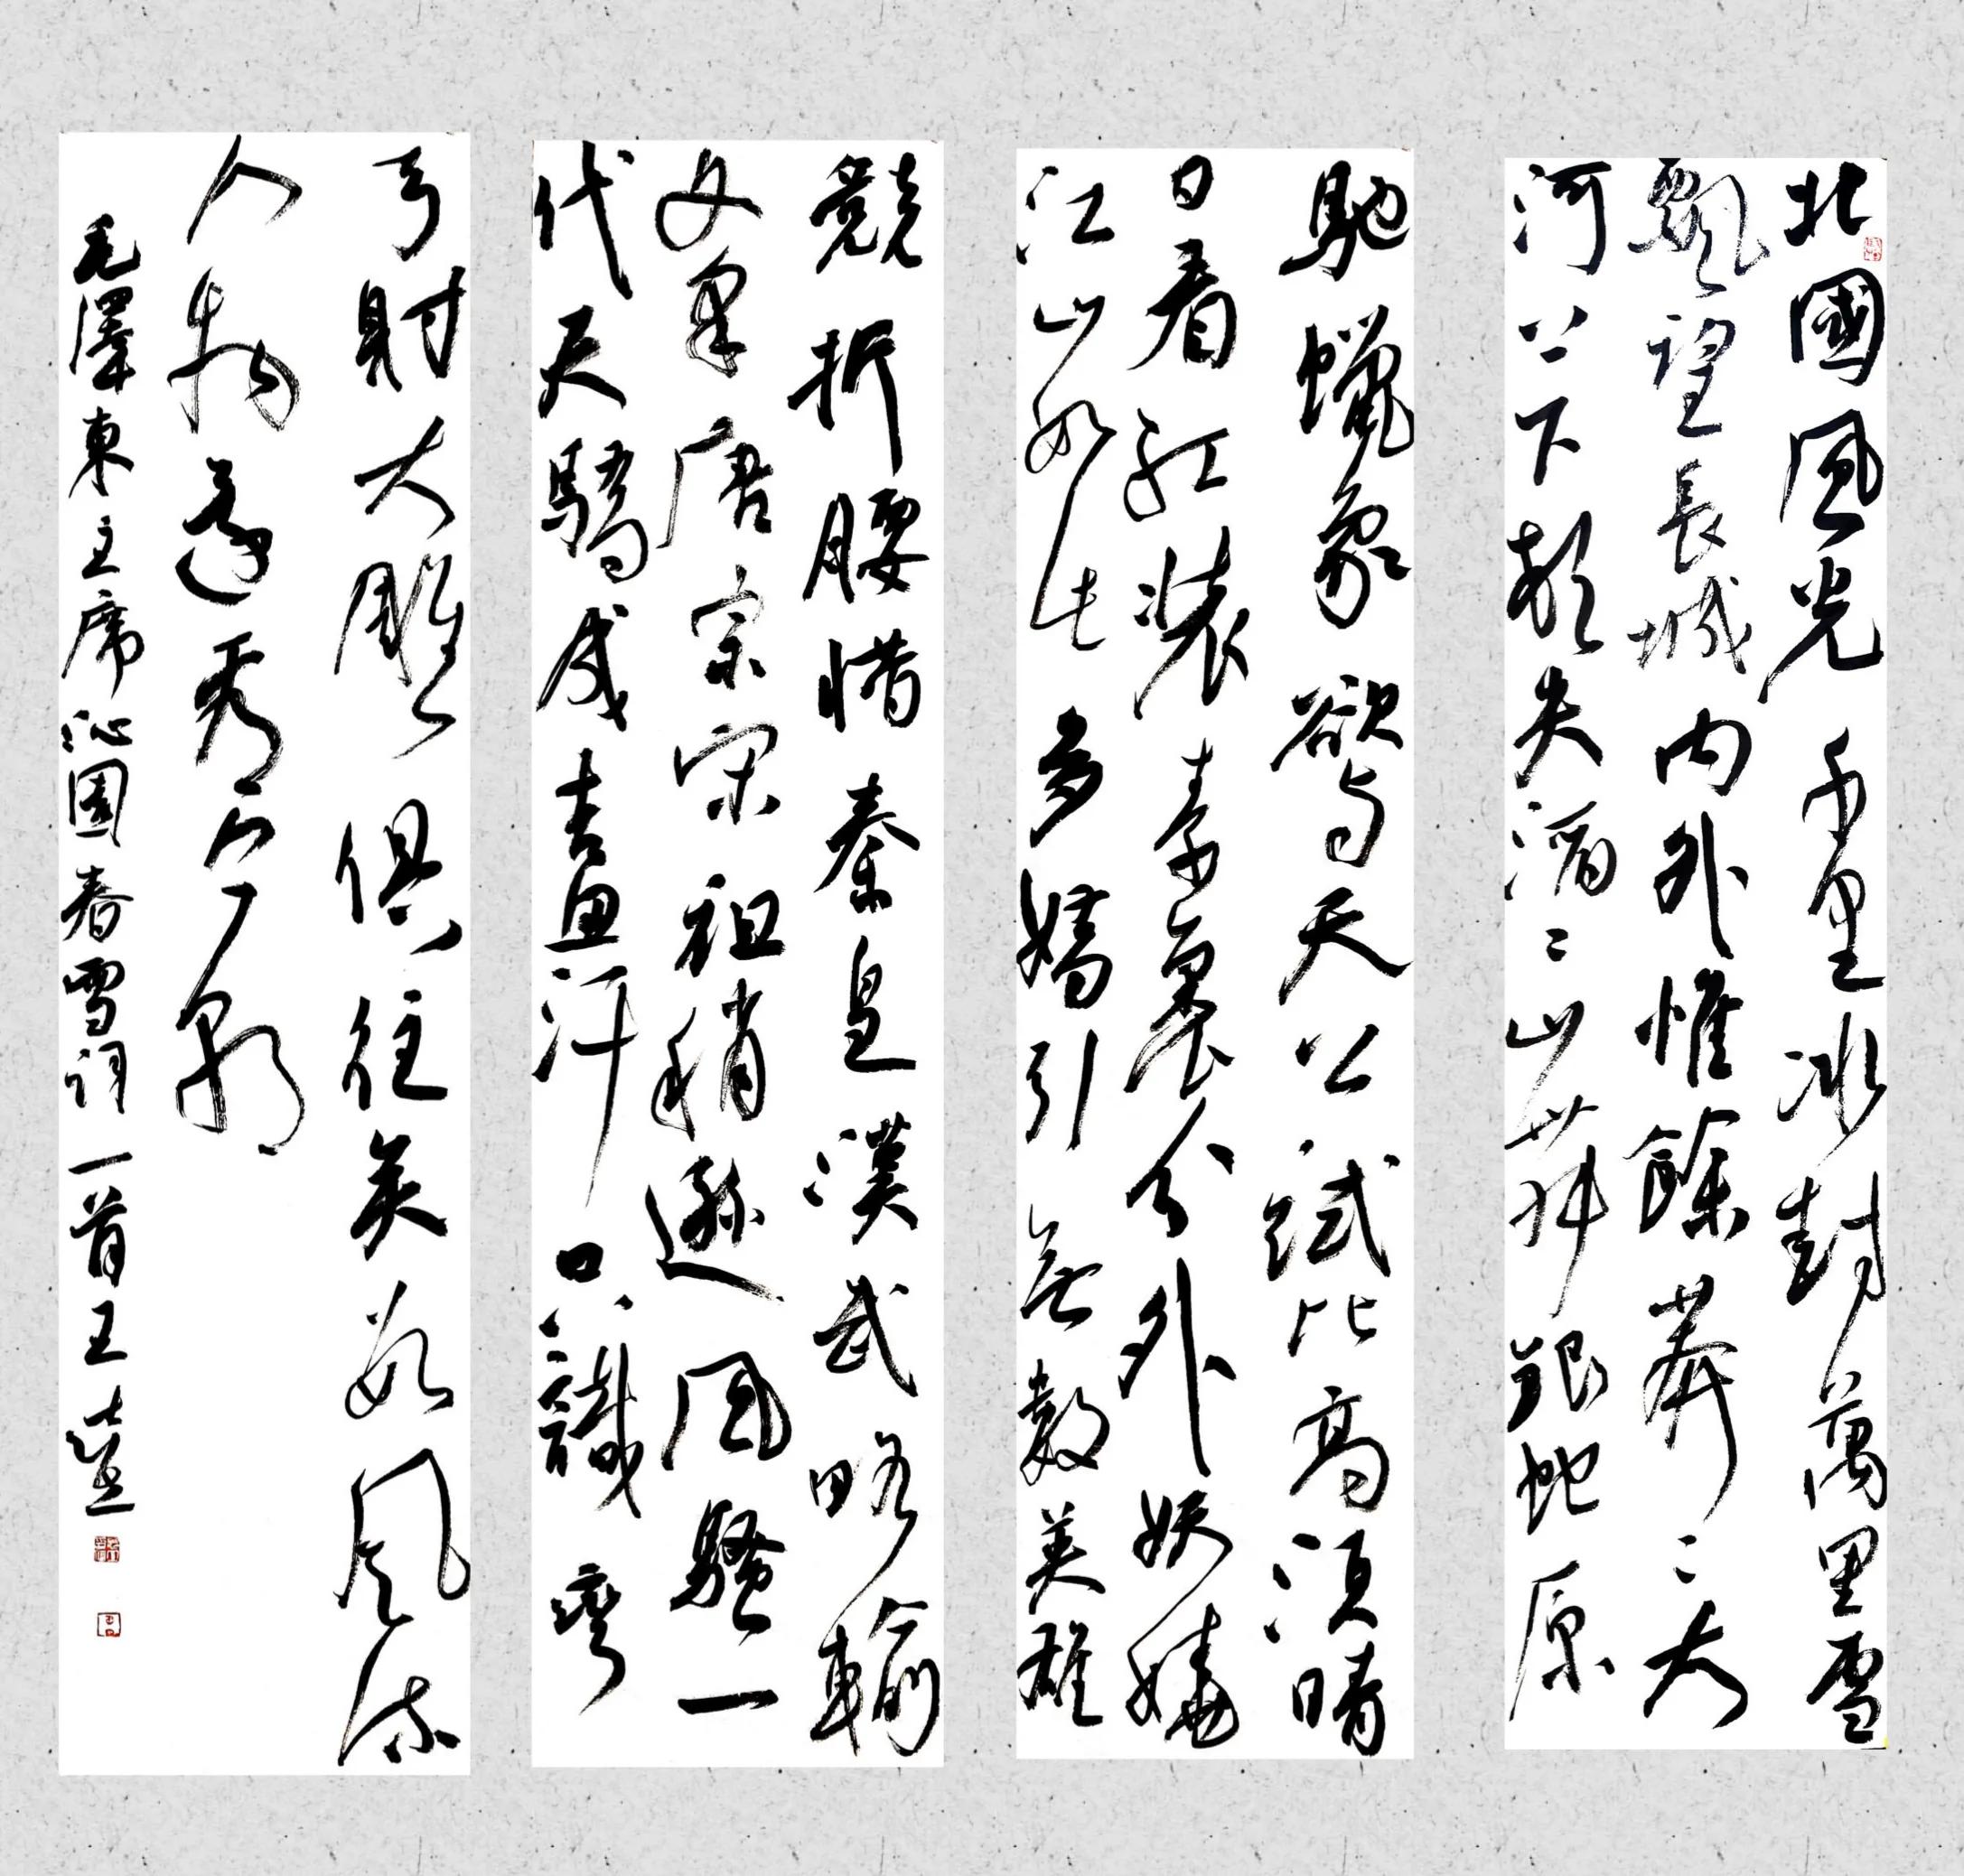 北國風光千里冰封萬里雪
飄望長城内外惟餘莽〻大
河上下頓失滔〻山舞銀蛇原
馳蠟象欲与天公試比高須晴
日看紅装素裹分外妖嬈
江山如此多嬌引無數英雄
競折腰惜秦皇漢武略輸
文采唐宗宋祖稍遜風騷一
代天驕成吉思汗只識彎
弓射大雕俱往矣數風流
人物還看今朝
毛澤東主席沁園春雪詞一首王